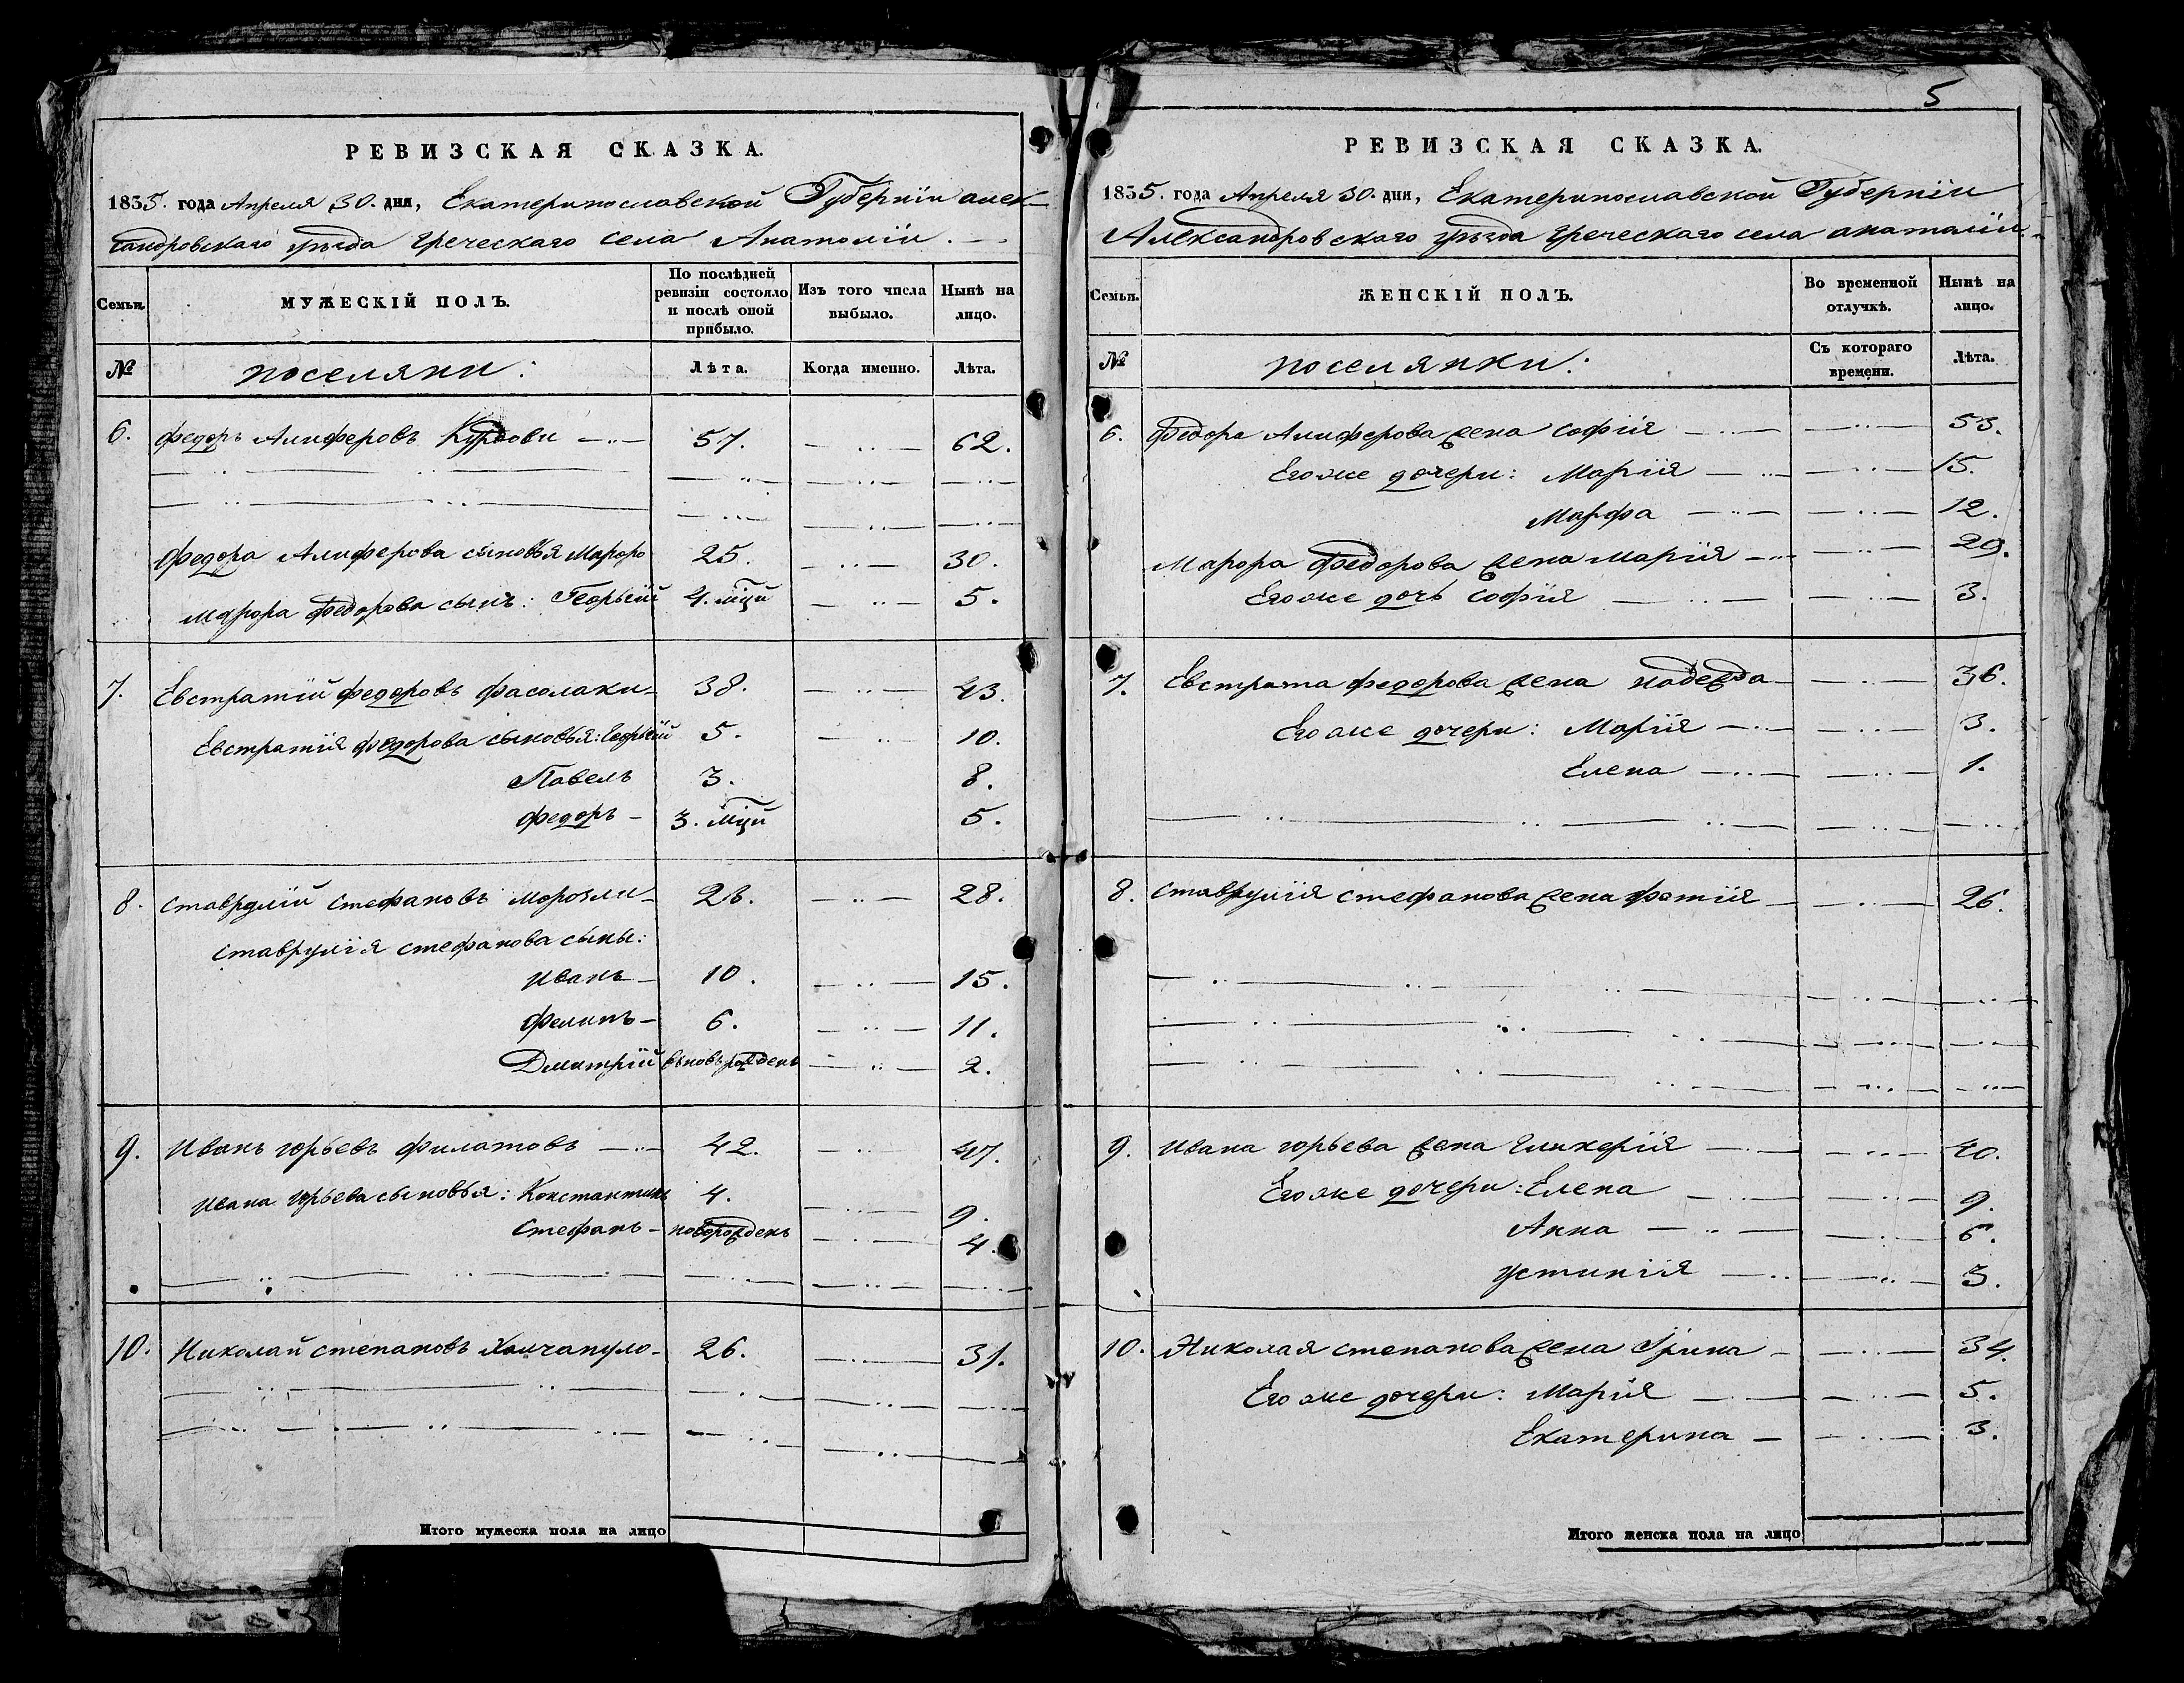 РЕВИЗСКАЯ СКАЗКА.
1835. года Апреля 30. дня, Екатеринославской Губерніи алек-
сандровскаго уѣзда греческаго села Анатоліи.
Семьи.
МУЖЕСКІЙ ПОЛЪ.
По послѣдней ревизіи состояло и послѣ оной прибыло.
Изъ того числа выбыло.
Нынѣ на лицо.
№
поселяни:
Лѣта.
Когда именно.
Лѣта.
6. федоръ Алиферовъ 57. 62.
федора Алиферова сыновья Мароро 25. 30.
Марора федорова сынъ: Георьгій 4. мци 5.
7. Евстратій федоровъ фасолаки 38. 43.
Евстратія федорова сыновья: Георьгій 5. 10.
Павелъ 3. 8.
федоръ 3. мци 5.
8. ставрулій стефановъ Морозли 23. 28.
ставрулія стефанова сыны:
иванъ 10. 15.
фелипъ 6. 11.
Дмитрій вьновь рожденъ 2.
9. Иванъ юрьевъ филатовъ 42. 47.
ивана юрьева сыновья: Константинъ 4. 9.
стефанъ новорожденъ 4.
10. Николай степановъ Халчапуло 26. 31.
Итого мужеска пола на лицо
5
РЕВИЗСКАЯ СКАЗКА.
1835. года Апреля 30. дня, Екатеринославской Губерніи
Александровскаго уѣзда греческаго села анатоліи.
Семьи.
ЖЕНСКІЙ ПОЛЪ.
Во временной отлучкѣ.
Нынѣ на лицо.
№
поселянки:
Съ котораго времени.
Лѣта.
6. Федора Алиферова жена софія 53.
Его же дочери: Марія 15.
Марфа 12.
Марора федорова жена марія 29.
Его же дочь софія 3.
7. Евстрата федорова жена надежда 36.
Его же дочери: Марія 3.
Елена 1.
8. ставрулія стефанова жена фотія 26.
9. ивана юрьева жена гликерія 40.
Его же дочери: Елена 9.
Анна 6.
устинія 3.
10. Николая степанова жена Ірина 34.
Его же дочери: Марія 5.
Екатерина 3.
Итого женска пола на лицо